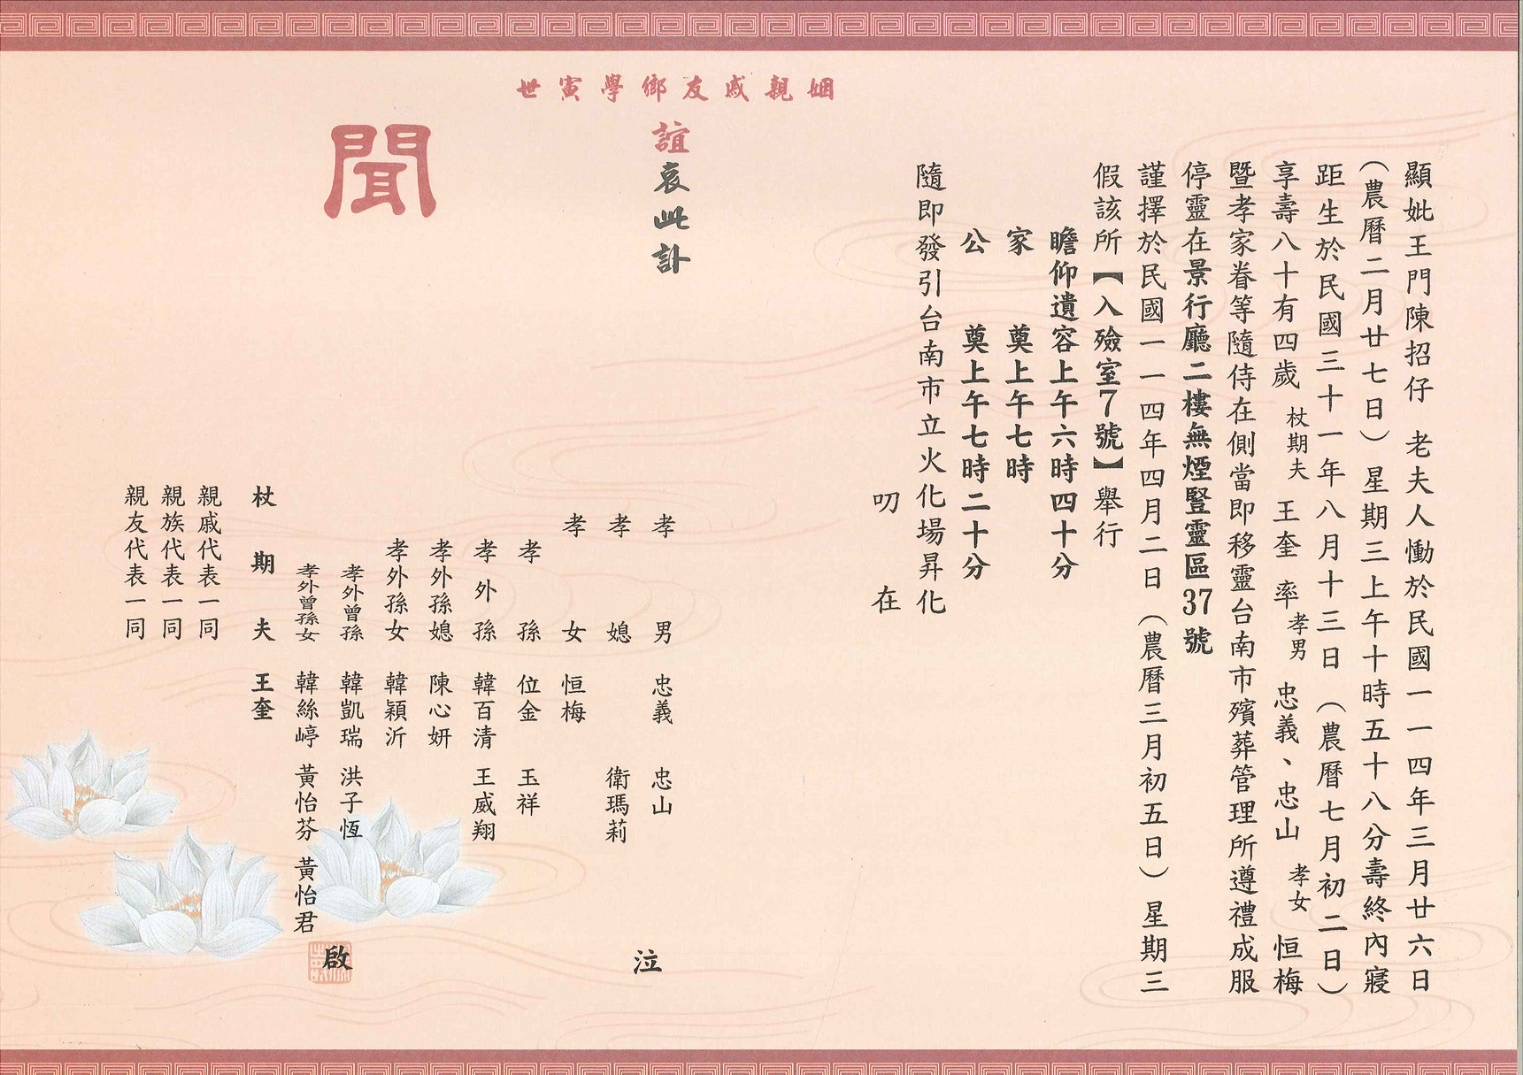 顯妣王門陳招仔　老夫人慟於民國一一四年三月廿六日
（農曆二月廿七日）星期三上午十時五十八分壽終內寢
距生於民國三十一年八月十三日（農曆七月初二日）
享壽八十有四歲　杖期夫　王奎　率　孝男　忠義、忠山　孝女　恒梅
暨孝家眷等隨侍在側當即移靈台南市殯葬管理所遵禮成服
停靈在景行廳二樓無煙豎靈區37號
謹擇於民國一一四年四月二日（農曆三月初五日）星期三
假該所【入殮室7號】舉行
瞻仰遺容上午六時四十分
家　奠上午七時
公　奠上午七時二十分
隨即發引台南市立火化場昇化
叨　在
姻親戚友鄉學寅世
誼哀此訃
聞
孝　男　忠義　忠山
孝　媳　衛瑪莉
孝　女　恒梅
孝　孫　位金　玉祥
孝外孫　韓百清　王威翔
孝外孫媳　陳心妍
孝外孫女　韓穎沂
孝外曾孫　韓凱瑞　洪子恆
孝外曾孫女　韓絲崞　黃怡芬　黃怡君
泣
杖期夫　王奎
親戚代表一同
親族代表一同
親友代表一同
啟